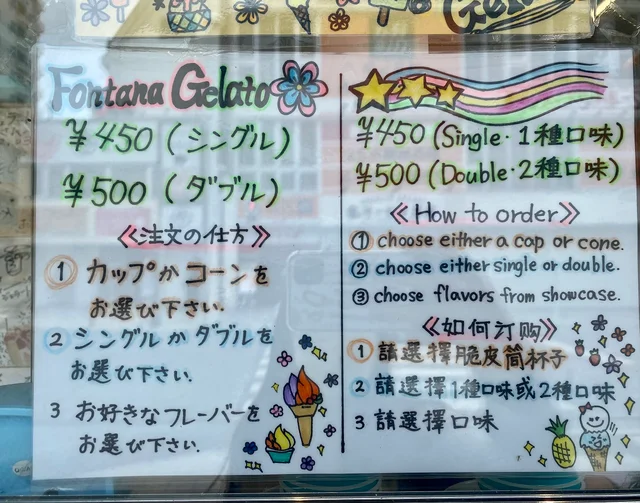 Fontana Gelato
¥450（シングル）
¥500（ダブル）
《注文の仕方》
① カップか コーンを
お選び下さい.
2 シングルか ダブルを
お選び下さい.
3 お好きなフレーバーを
お選び下さい.
¥450 (Single・1種口味)
¥500 (Double・2種口味)
《How to order》
① choose either a cap or cone.
② choose either single or double.
③ choose flavors from showcase.
《如何订购》
1 請選擇脆皮筒杯子
2 請選擇1種口味或2種口味
3 請選擇口味